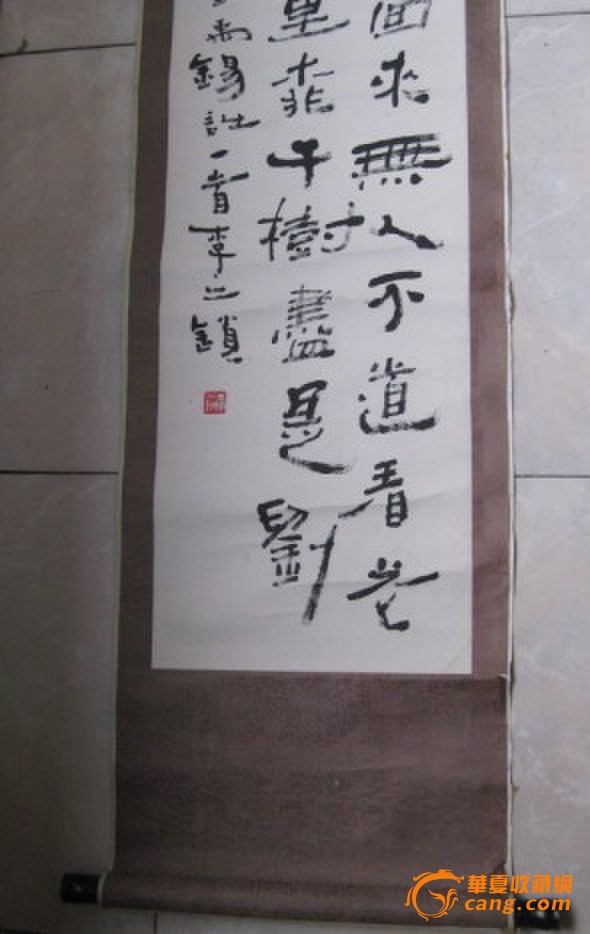 面來無人不道看花
里桃千樹盡是劉
禹錫詩一首李鎖
華夏收藏網
cang.com